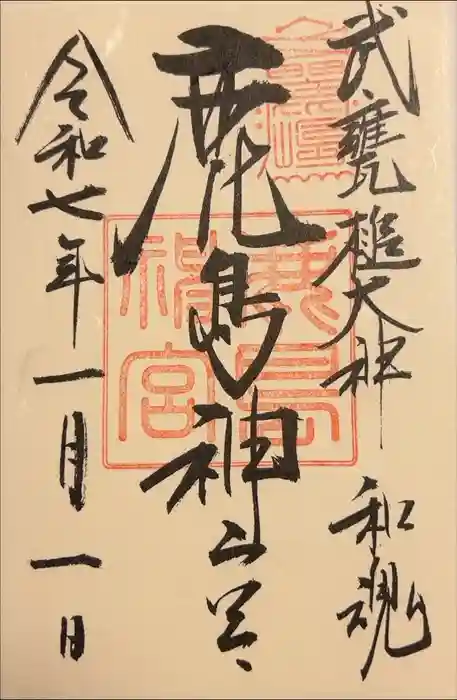 武甕槌大神 和魂
鹿島神宮
令和七年一月一日
鹿島神宮